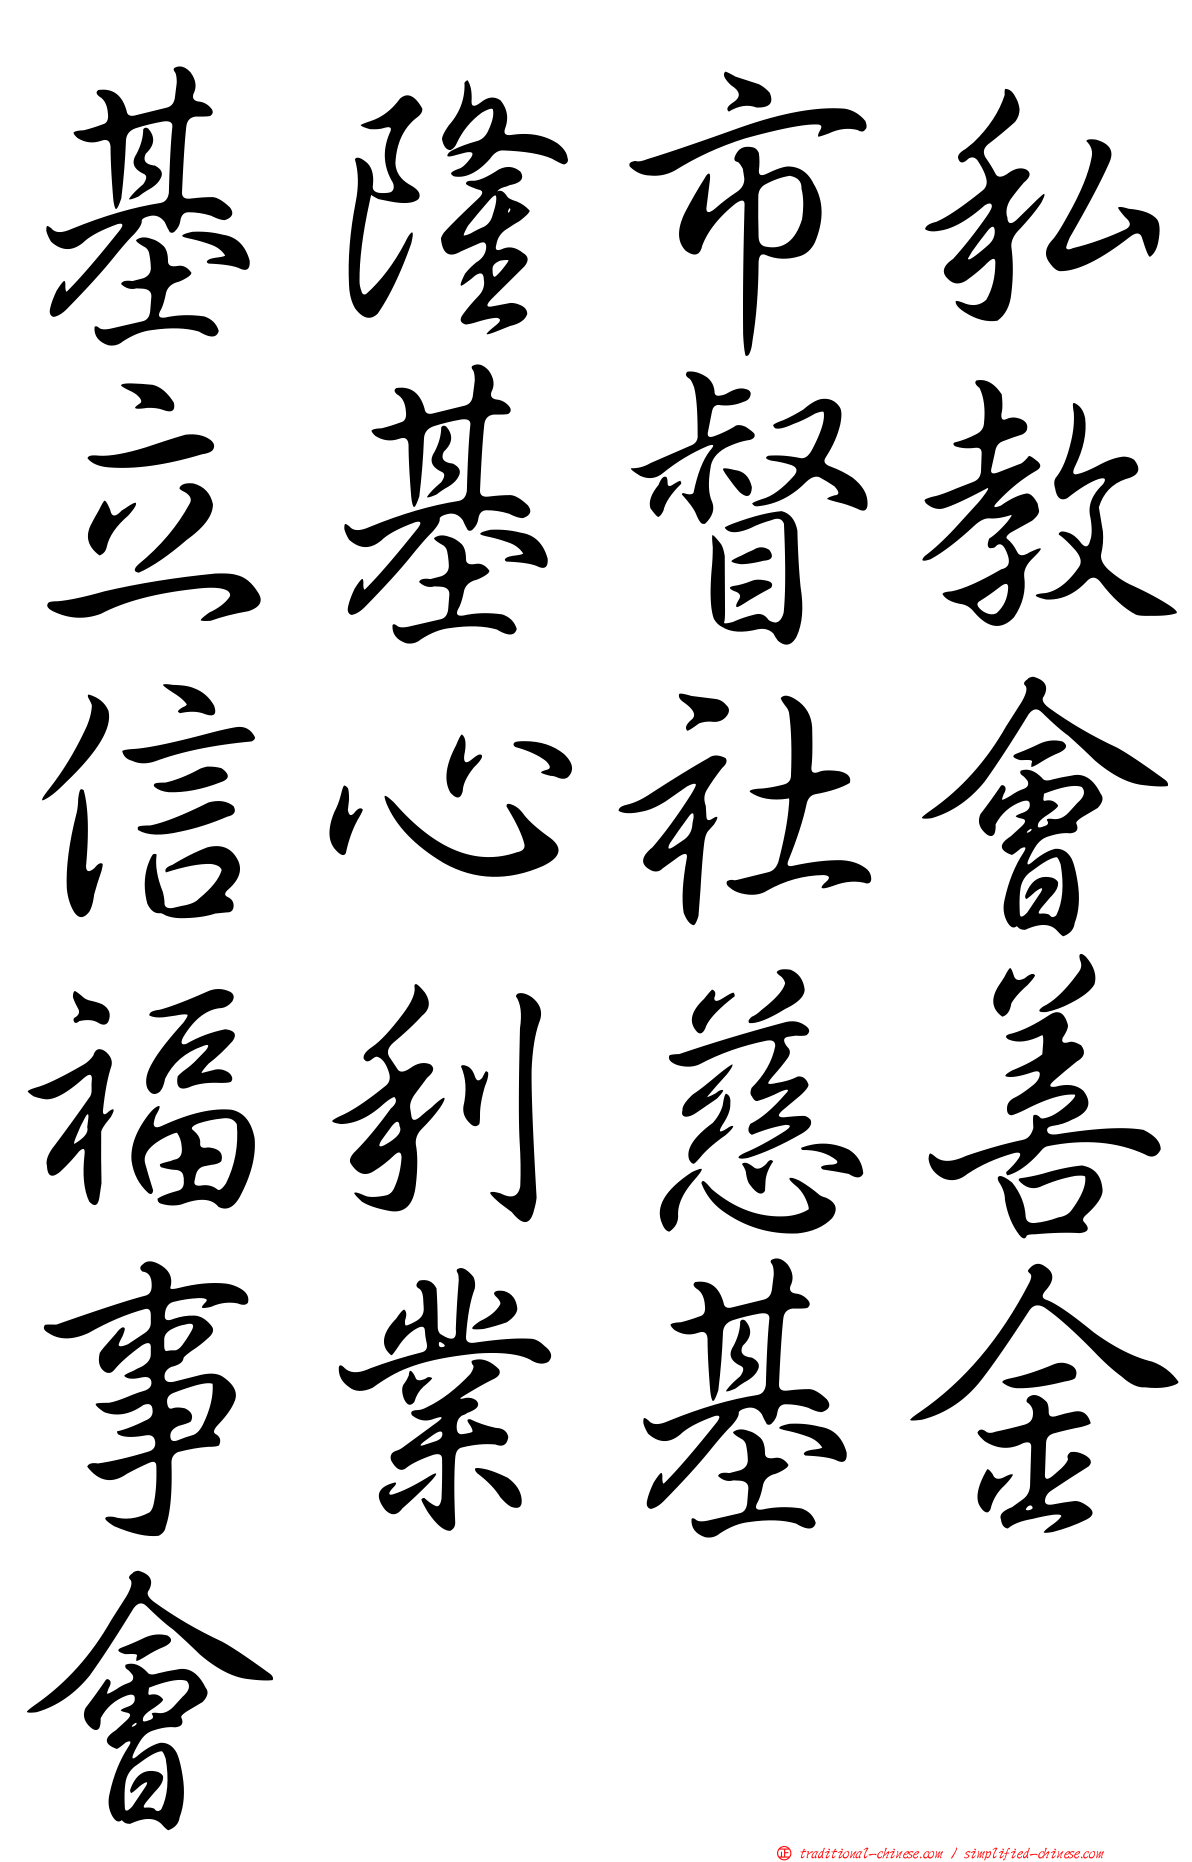 基隆市私
立基督教
信心社會
福利慈善
事業基金
會
正 traditional-chinese.com / simplified-chinese.com